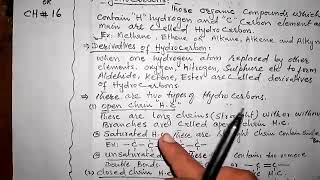 or
CH # 16
Hydrocarbons
These organic Compounds which
Contain "H" hydrogen and "C" Carbon element
are Called Hydrocarbon.
Ex: Methane, Ethene or Alkane, Alkene and Alkyne
⇒ Derivatives of Hydrocarbon:
When one hydrogen atom replaced by other
elements. oxygen, Nitrogen, Sulphure etc to form
Aldehyde, Ketone, Ester are Called derivatives
of Hydrocarbons.
⇒ there are two types of Hydro Carbons.
(1) open chain "H.C"
These are long chains (straight) with or without
Branches are Called open chain H.C.
① Saturated H.C. these are chain contain
Ex: -C-C-C-
② unsaturated These contain
Double Bond
(2) closed chain H.C